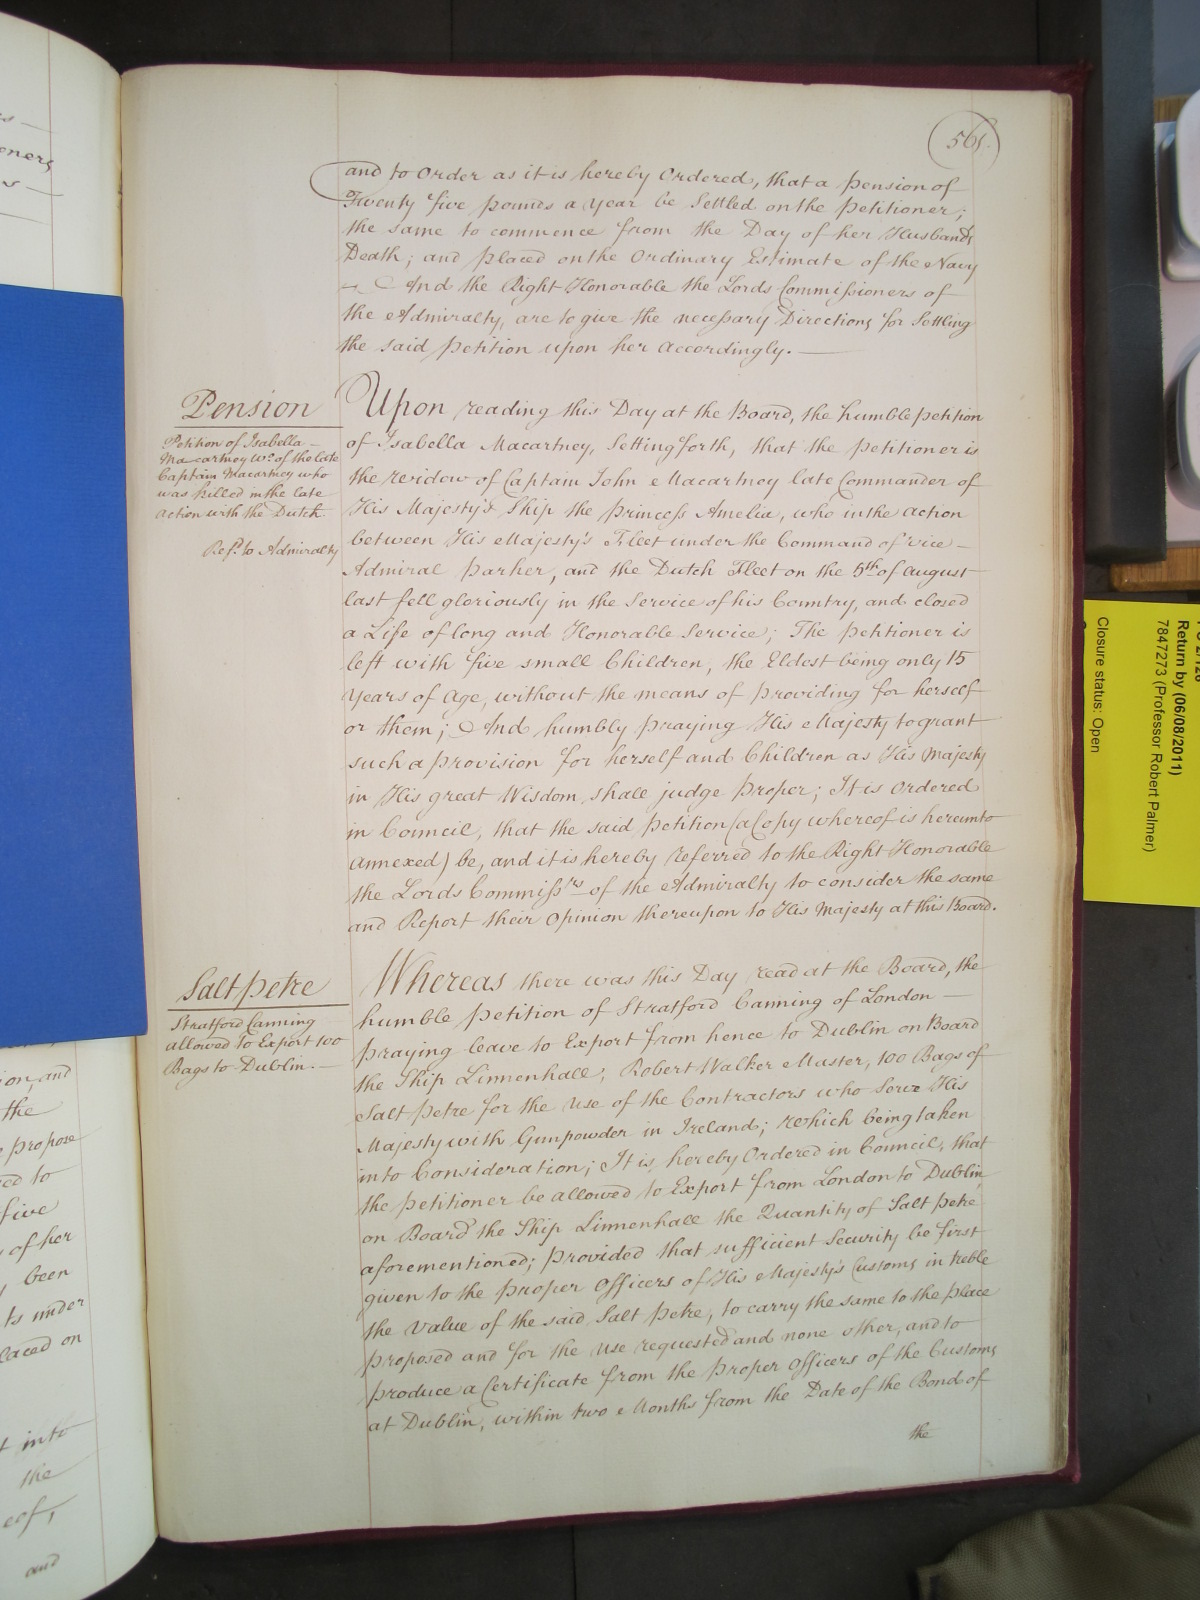 561.
and to Order as it is hereby Ordered, that a Pension of
Twenty five pounds a Year be Settled on the Petitioner;
the same to commence from the Day of her Husbands
Death; and placed on the Ordinary Estimate of the Navy
And the Right Honorable the Lords Commissioners of
the Admiralty, are to give the necessary Directions for Settling
the said Petition upon her accordingly.
Pension
Petition of Isabella
Macartney Wo. of the late
Captain Macartney who
was killed in the late
Action with the Dutch.
Refd. to Admiralty
Upon reading this Day at the Board, the humble petition
of Isabella Macartney, Setting forth, that the Petitioner is
the Widow of Captain John Macartney late Commander of
His Majesty's Ship the Princess Amelia, who in the action
between His Majesty's Fleet under the Command of Vice
Admiral Parker, and the Dutch Fleet on the 5th of August
last fell gloriously in the Service of his Country, and closed
a Life of long and Honorable Service; The Petitioner is
left with five small Children, the Eldest being only 15
Years of Age, without the means of Providing for herself
or them; And humbly praying His Majesty to grant
such a provision for herself and Children as His Majesty
in His great Wisdom shall judge Proper; It is Ordered
in Council, that the said Petition (a Copy whereof is hereunto
annexed) be, and it is hereby referred to the Right Honorable
the Lords Commissrs of the Admiralty to consider the same
and Report their Opinion thereupon to His Majesty at this Board.
Salt petre
Stratford Canning
allowed to Export 100
Bags to Dublin.
Whereas there was this Day read at the Board, the
humble Petition of Stratford Canning of London
praying leave to Export from hence to Dublin on Board
the Ship Linnenhall, Robert Walker Master, 100 Bags of
Salt petre for the Use of the Contractors who Serve His
Majesty with Gunpowder in Ireland; which being taken
into Consideration; It is hereby Ordered in Council, that
the Petitioner be allowed to Export from London to Dublin
on Board the Ship Linnenhall the Quantity of Salt petre
aforementioned; Provided that sufficient Security be first
given to the proper Officers of His Majesty's Customs in treble
the Value of the said Salt petre, to carry the same to the place
proposed and for the use requested and none other, and to
produce a Certificate from the proper Officers of the Customs
at Dublin, within two Months from the Date of the Bond of
the
Return by (06/08/2011)
7847273 (Professor Robert Palmer)
Closure status: Open
ion, and
the
propose
to
five
of her
been
ts under
laced on
into
the
eof,
and